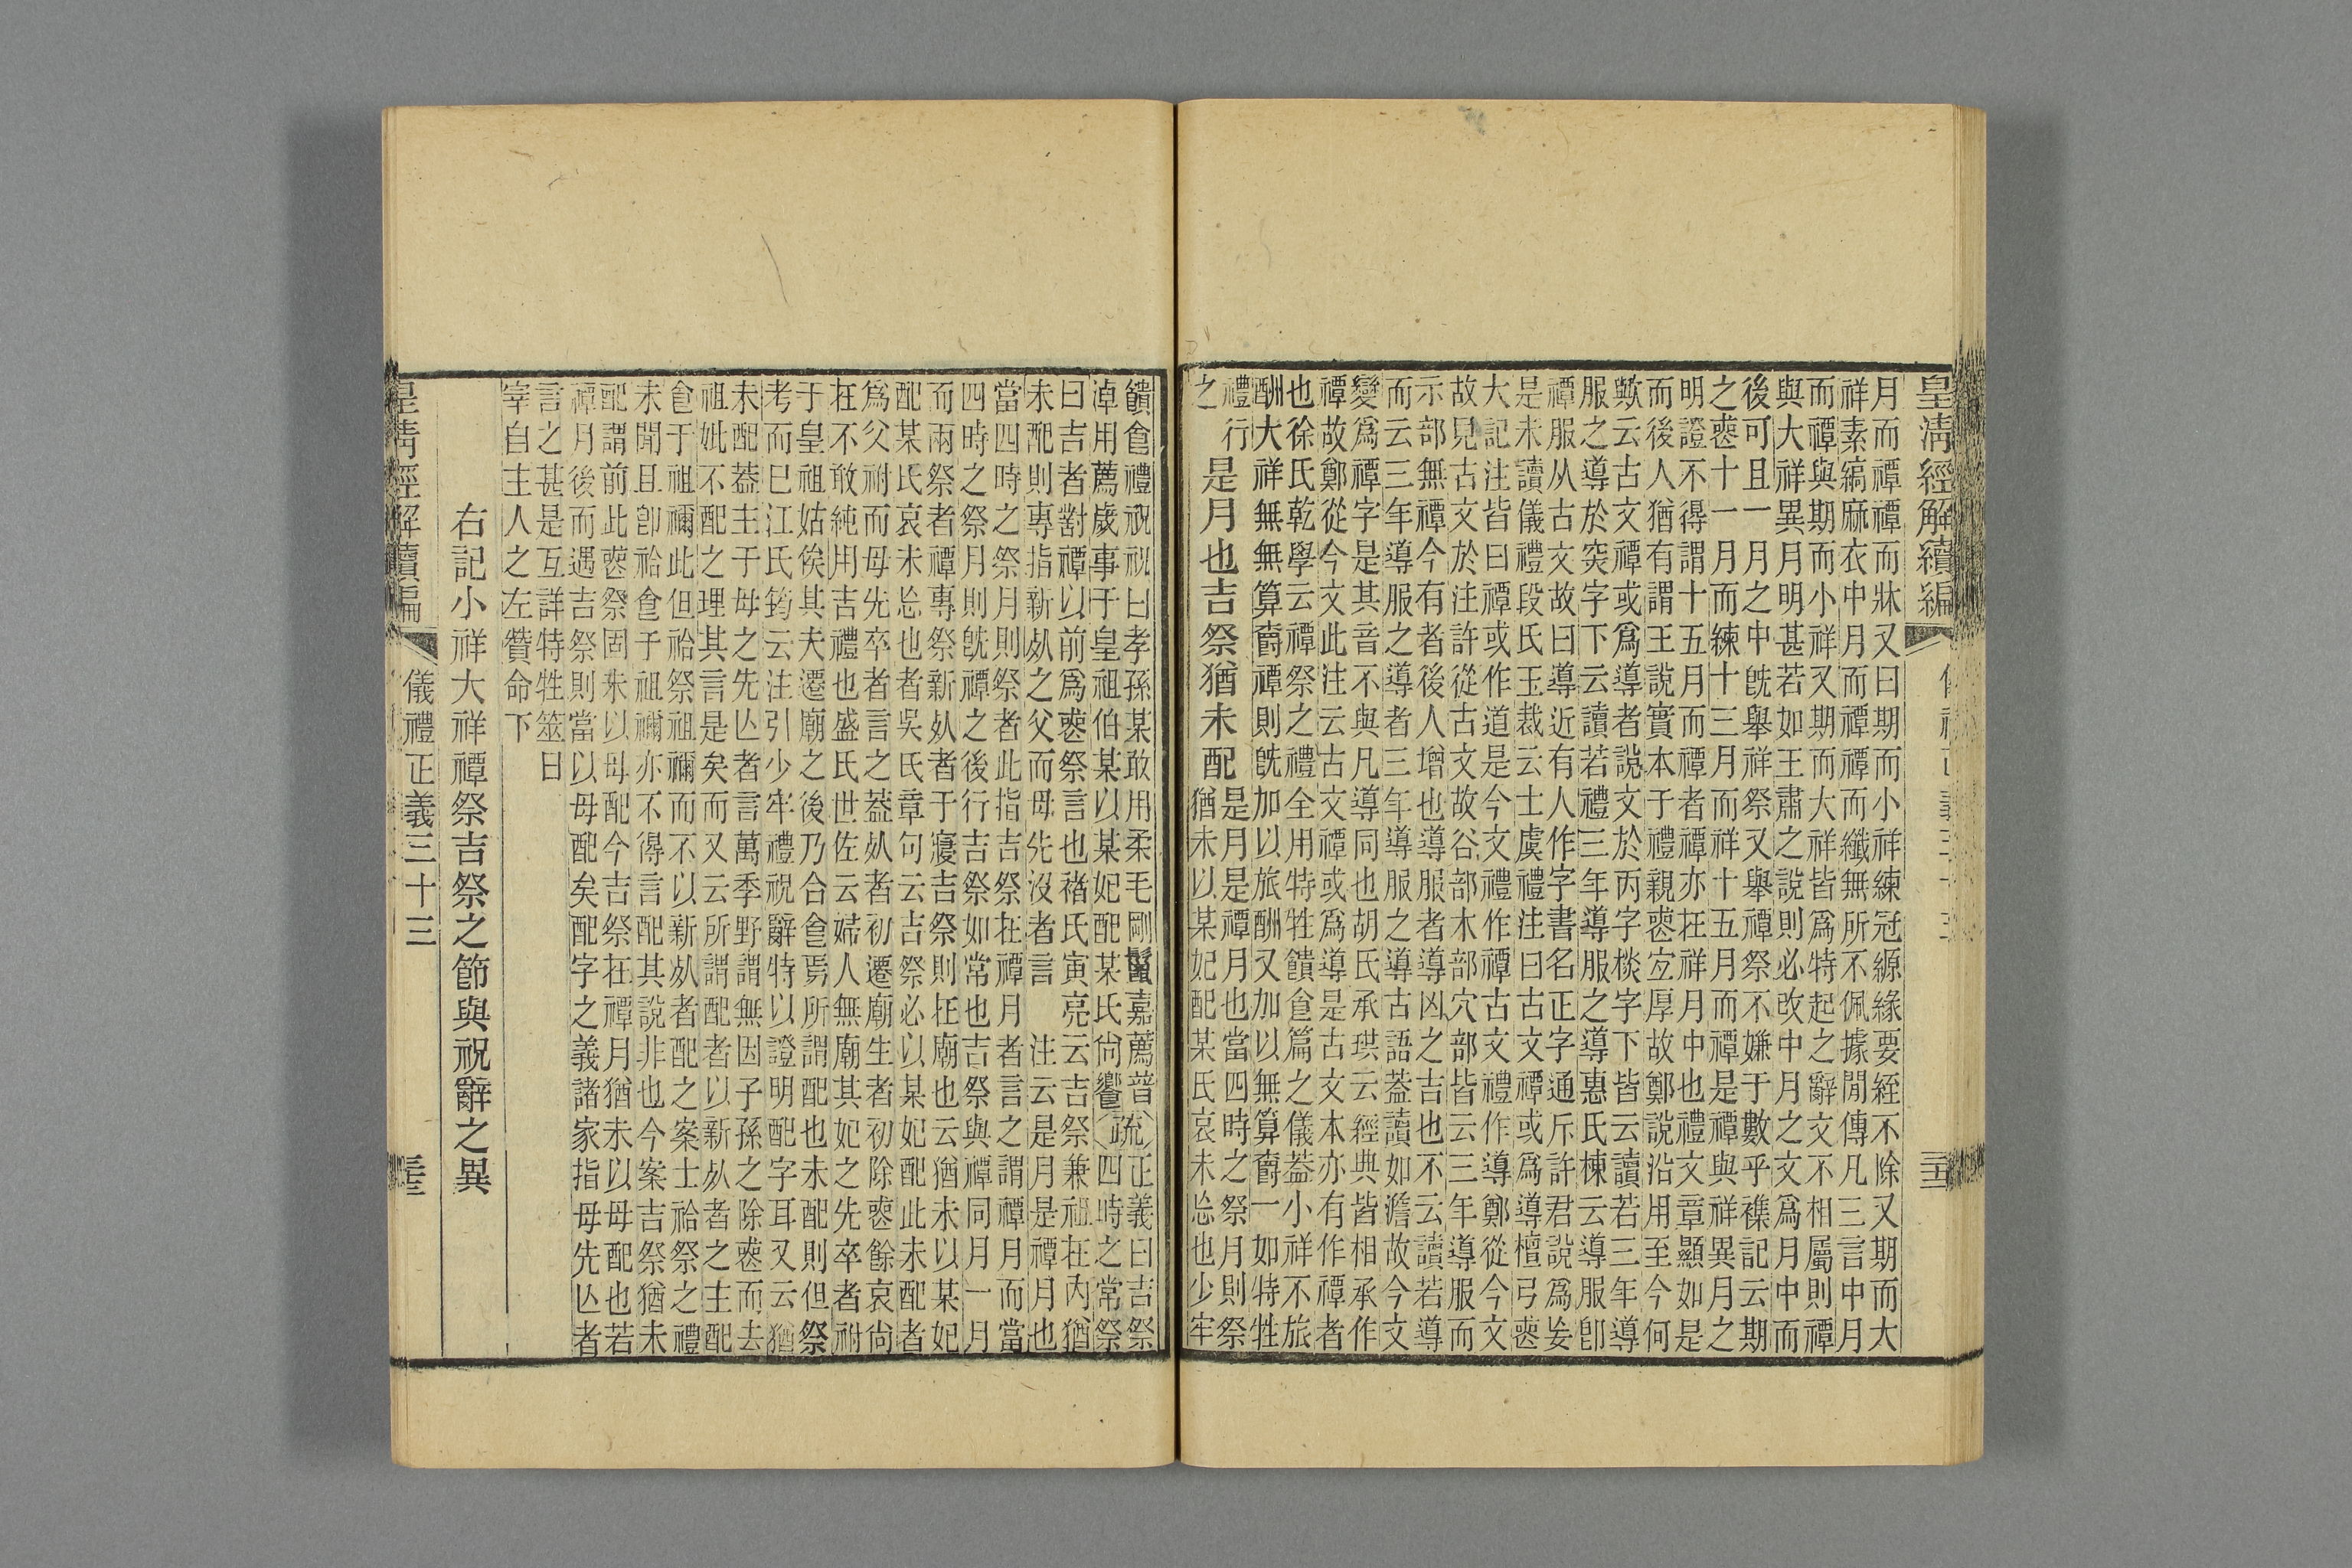 皇清經解續編
月而禫禫而牀又曰期而小祥練冠縓緣要絰不除又期而大
祥素縞麻衣中月而禫禫而纖無所不佩據閒傳凡三言中月
而禫與期而小祥又期而大祥皆爲特起之辭文不相屬則禫
與大祥異月明甚若如王肅之說則必改中月之文爲月中而
後可且一月之中旣舉祥祭又舉禫祭不嫌于數乎襍記云期
之䘮十一月而練十三月而祥十五月而禫是禫與祥異月之
明證不得謂十五月而禫者禫亦在祥月中也禮文章顯如是
而後人猶有謂王說實本于禮親䘮宐厚故鄭說沿用至今何
歟云古文禫或爲導者說文於丙字棪字下皆云讀若三年導
服之導於突字下云讀若禮三年導服之導惠氏棟云導服卽
禫服从古文故曰導近有人作字書名正字通斥許君說爲妄
是未讀儀禮段氏玉裁云士虞禮注曰古文禫或爲導檀弓䘮
大記注皆曰禫或作道是今文禮作禫古文禮作導鄭從今文
故見古文於注許從古文故谷部木部穴部皆云三年導服而
示部無禫今有者後人增也導服者導凶之吉也不云讀若導
而云三年導服之導者三年導服之導古語葢讀如澹故今文
變爲禫字是其音不與凡導同也胡氏承珙云經典皆相承作
禫故鄭從今文此注云古文禫或爲導是古文本亦有作禫者
也徐氏乾學云禫祭之禮全用特牲饋食篇之儀葢小祥不旅
酬大祥無無算爵禫則旣加以旅酬又加以無算爵一如特牲
禮行
之
是月也吉祭猶未配
是月是禫月也當四時之祭月則祭
猶未以某妃配某氏哀未忘也少牢
饋食禮祝祝曰孝孫某敢用柔毛剛鬣嘉薦普
淖用薦歲事于皇祖伯某以某妃配某氏尙饗
疏
正義曰吉祭
四時之常祭
曰吉者對禫以前爲䘮祭言也褚氏寅亮云吉祭兼祖在內猶
未配則專指新死之父而母先沒者言 注云是月是禫月也
當四時之祭月則祭者此指吉祭在禫月者言之謂禫月而當
四時之祭月則旣禫之後行吉祭如常也吉祭與禫同月一月
而兩祭者禫專祭新死者于寢吉祭則在廟也云猶未以某妃
配某氏哀未忘也者吳氏章句云吉祭必以某妃配此未配者
爲父祔而母先卒者言之葢死者初遷廟生者初除䘮餘哀尙
在不敢純用吉禮也盛氏世佐云婦人無廟其妃之先卒者祔
于皇祖姑俟其夫遷廟之後乃合食焉所謂配也未配則但祭
考而已江氏筠云注引少牢禮祝辭特以證明配字耳又云猶
未配葢主于母之先亾者言萬季野謂無因子孫之除䘮而去
祖妣不配之理其言是矣而又云所謂配者以新死者之主配
食于祖禰此但祫祭祖禰而不以新死者配之案士祫祭之禮
未聞且卽祫食于祖禰亦不得言配其說非也今案吉祭猶未
配謂前此䘮祭固未以母配今吉祭在禫月猶未以母配也若
禫月後而遇吉祭則當以母配矣配字之義諸家指母先亾者
言之甚是互詳特牲筮日
宰自主人之左贊命下
右記小祥大祥禫祭吉祭之節與祝辭之異
皇清經解續編 儀禮正義三十三